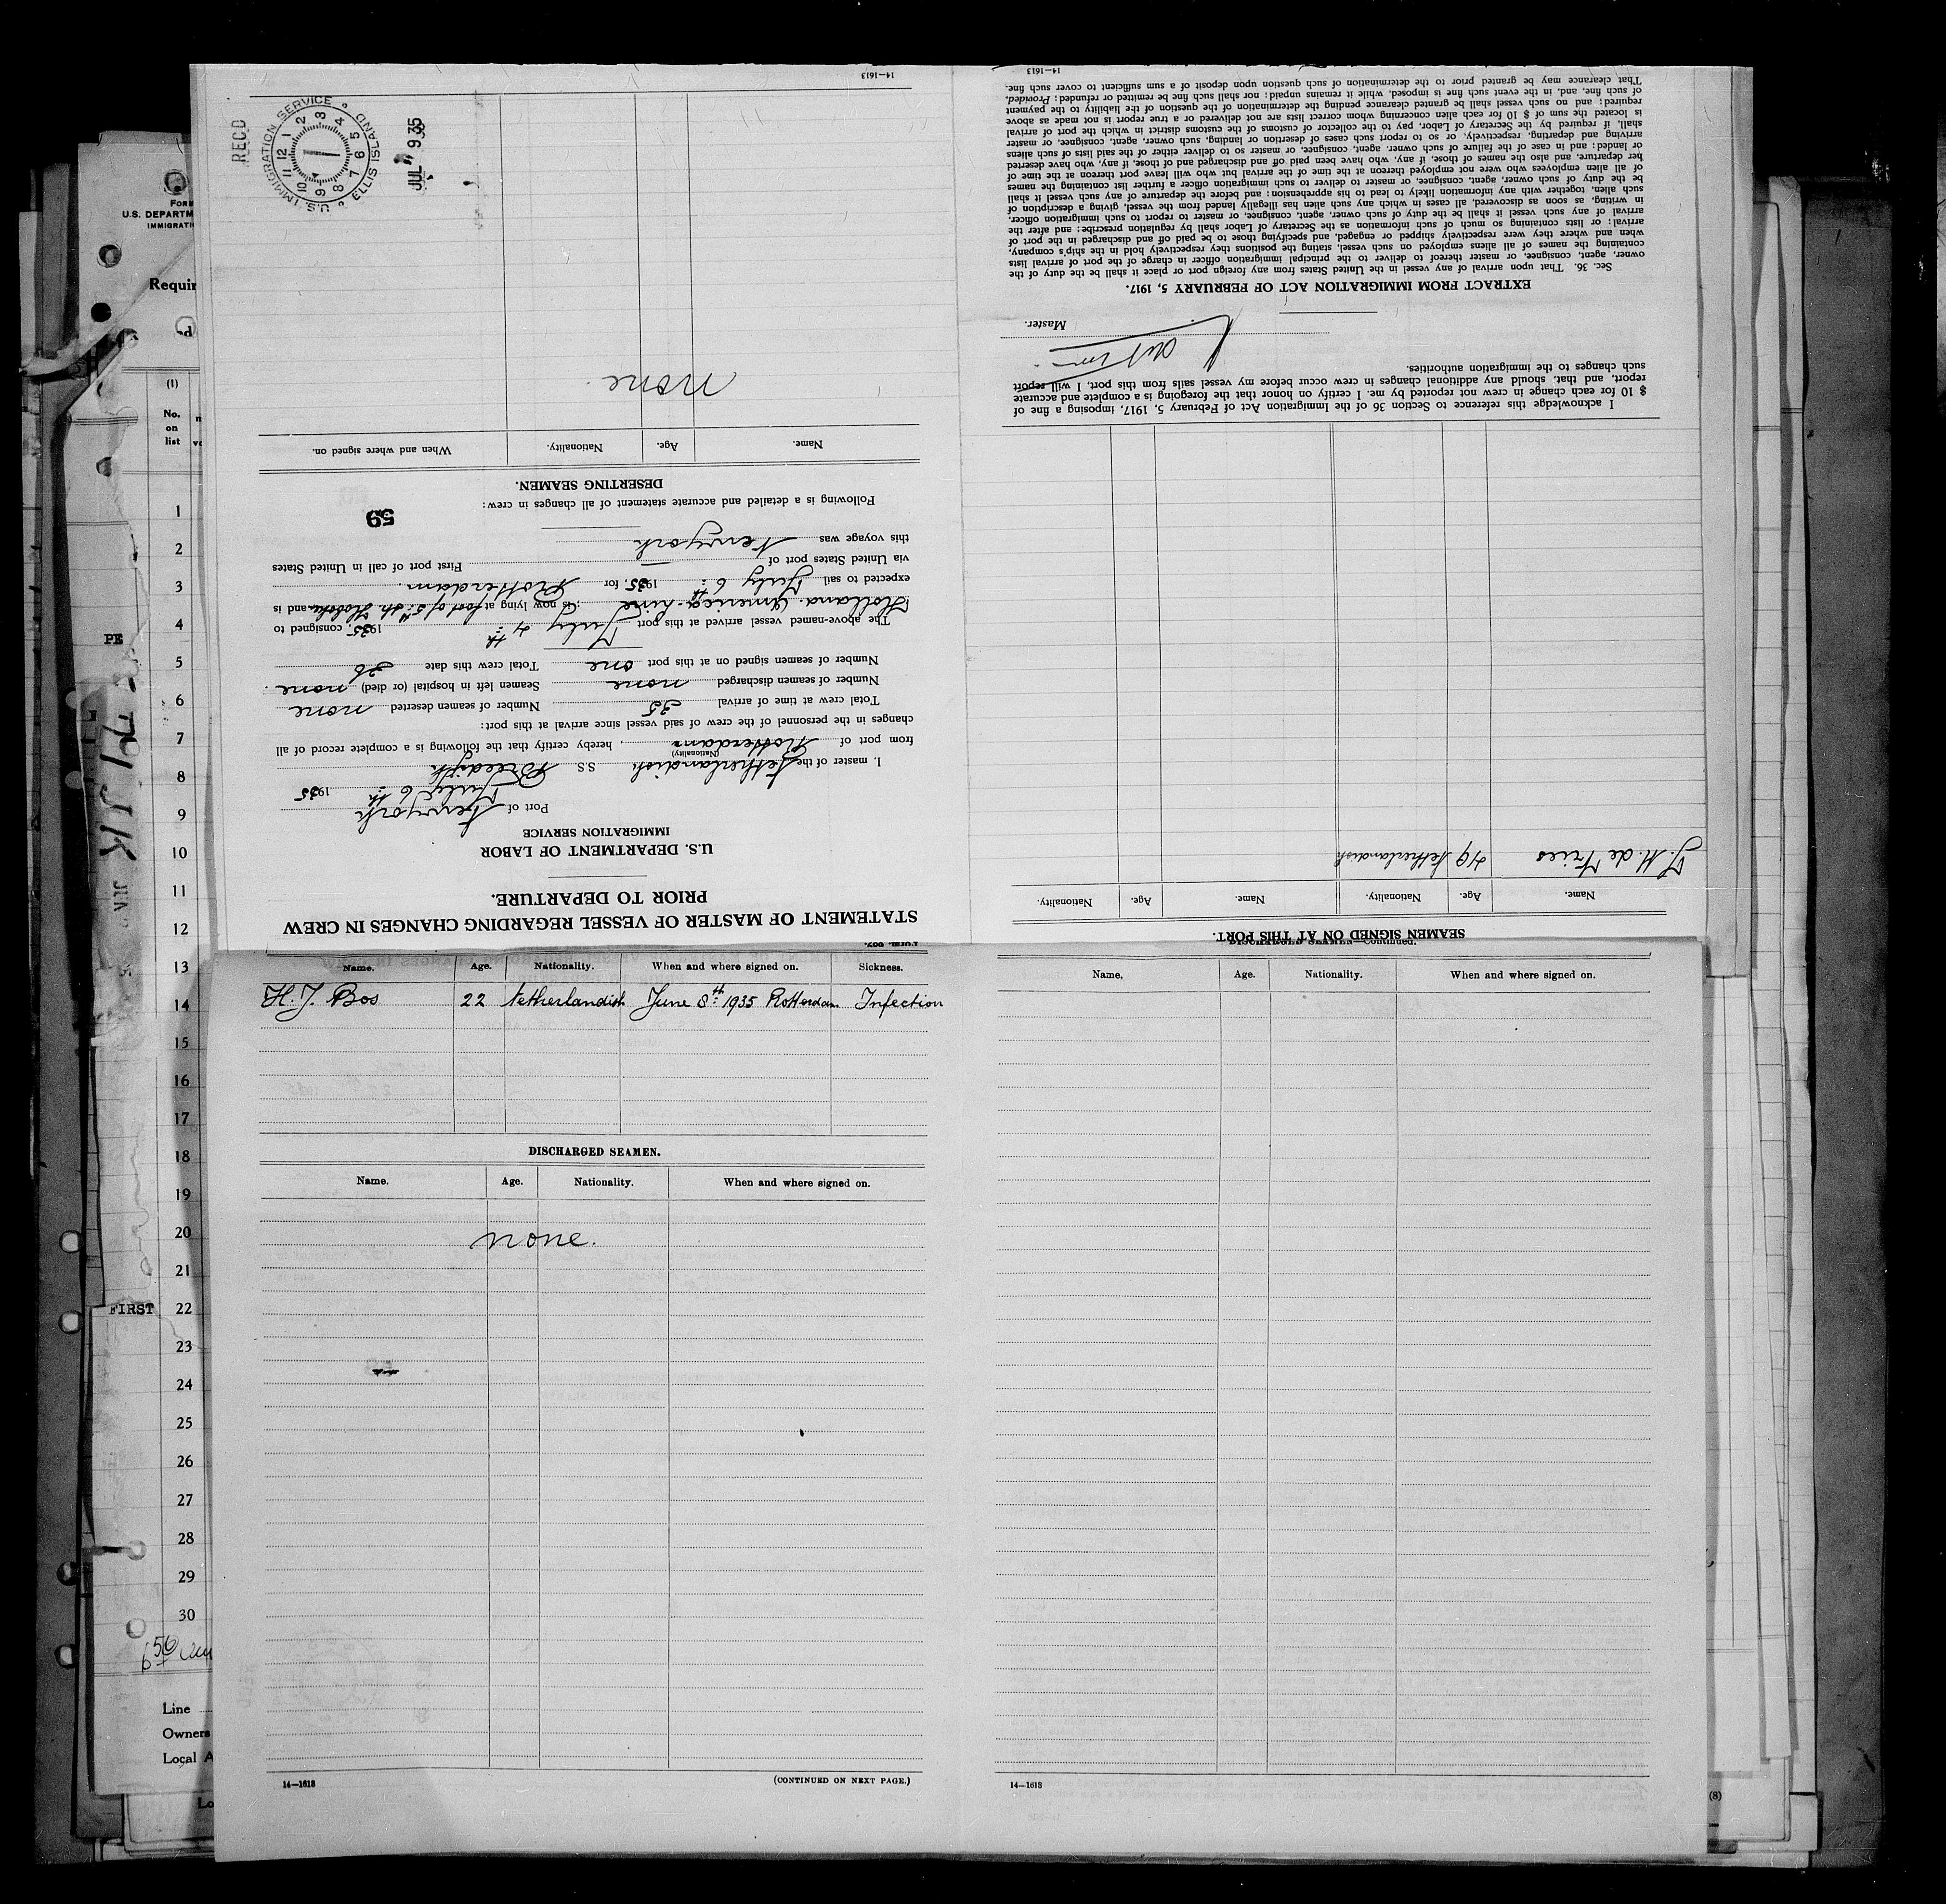 STATEMENT OF MASTER OF VESSEL REGARDING CHANGES IN CREW
PRIOR TO DEPARTURE.
U.S. DEPARTMENT OF LABOR
IMMIGRATION SERVICE
Port of Newyork
July 6th 1935
I, master of the Netherlandish S.S. Breedijk
(Nationality)
from port of Rotterdam, hereby certify that the following is a complete record of all
changes in the personnel of the crew of said vessel since arrival at this port:
Total crew at time of arrival 35 Number of seamen deserted none
Number of seamen discharged none Seamen left in hospital (or died) none.
Number of seamen signed on at this port one Total crew this date 36
The above-named vessel arrived at this port July 4th 1935, consigned to
Holland-America-Line; is now lying at foot of 5th Str. Hoboken and is
expected to sail July 6th 1935, for Rotterdam.
via United States port of — First port of call in United States
this voyage was Newyork
59
Following is a detailed and accurate statement of all changes in crew:
DESERTING SEAMEN.
Name. Age. Nationality. When and where signed on.
none.
REC'D
U.S. IMMIGRATION SERVICE
ELLIS ISLAND
1 2 3 4 5 6 7 8 9 10 11 12
JUL 9 935
14—1613
SEAMEN SIGNED ON AT THIS PORT.
Name. Age. Nationality. Name. Age. Nationality.
J. H. de Vries 49 Netherlandish
I acknowledge this reference to Section 36 of the Immigration Act of February 5, 1917, imposing a fine of
$10 for each change in crew not reported by me. I certify on honor that the foregoing is a complete and accurate
report, and that, should any additional changes in crew occur before my vessel sails from this port, I will report
such changes to the immigration authorities.
Master.
EXTRACT FROM IMMIGRATION ACT OF FEBRUARY 5, 1917.
Sec. 36. That upon arrival of any vessel in the United States from any foreign port or place it shall be the duty of the
owner, agent, consignee, or master thereof to deliver to the principal immigration officer in charge of the port of arrival lists
containing the names of all aliens employed on such vessel, stating the positions they respectively hold in the ship's company,
when and where they were respectively shipped or engaged, and specifying those to be paid off and discharged in the port of
arrival; or lists containing so much of such information as the Secretary of Labor shall by regulation prescribe; and after the
arrival of any such vessel it shall be the duty of such owner, agent, consignee, or master to report to such immigration officer,
in writing, as soon as discovered, all cases in which any such alien has illegally landed from the vessel, giving a description of
such alien, together with any information likely to lead to his apprehension; and before the departure of any such vessel it shall
be the duty of such owner, agent, consignee, or master to deliver to such immigration officer a further list containing the names
of all alien employees who were not employed thereon at the time of the arrival but who will leave port thereon at the time of
her departure, and also the names of those, if any, who have been paid off and discharged and of those, if any, who have deserted
or landed; and in case of the failure of such owner, agent, consignee, or master so to deliver either of the said lists of such aliens
arriving and departing, respectively, or so to report such cases of desertion or landing, such owner, agent, consignee, or master
shall, if required by the Secretary of Labor, pay to the collector of customs of the customs district in which the port of arrival
is located the sum of $10 for each alien concerning whom correct lists are not delivered or a true report is not made as above
required; and no such vessel shall be granted clearance pending the determination of the question of the liability to the payment
of such fine, and, in the event such fine is imposed, while it remains unpaid; nor shall such fine be remitted or refunded: Provided,
That clearance may be granted prior to the determination of such question upon deposit of a sum sufficient to cover such fine.
14—1613
DISCHARGED SEAMEN—Continued.
Name. Age. Nationality. When and where signed on. Sickness.
H. J. Bos 22 Netherlandish June 8th 1935 Rotterdam Infection
DISCHARGED SEAMEN.
Name. Age. Nationality. When and where signed on.
none.
14—1613
(CONTINUED ON NEXT PAGE.)
Name. Age. Nationality. When and where signed on.
14—1613
Form
U.S. DEPARTM
IMMIGRATI
Requir
(1)
No.
on
list
1
2
3
4
PE
5
6
7
8
9
10
11
12
13
14
15
16
17
18
19
20
21
FIRST 22
23
24
25
26
27
28
29
30
Line
Owners
Local A
Lo
(8)